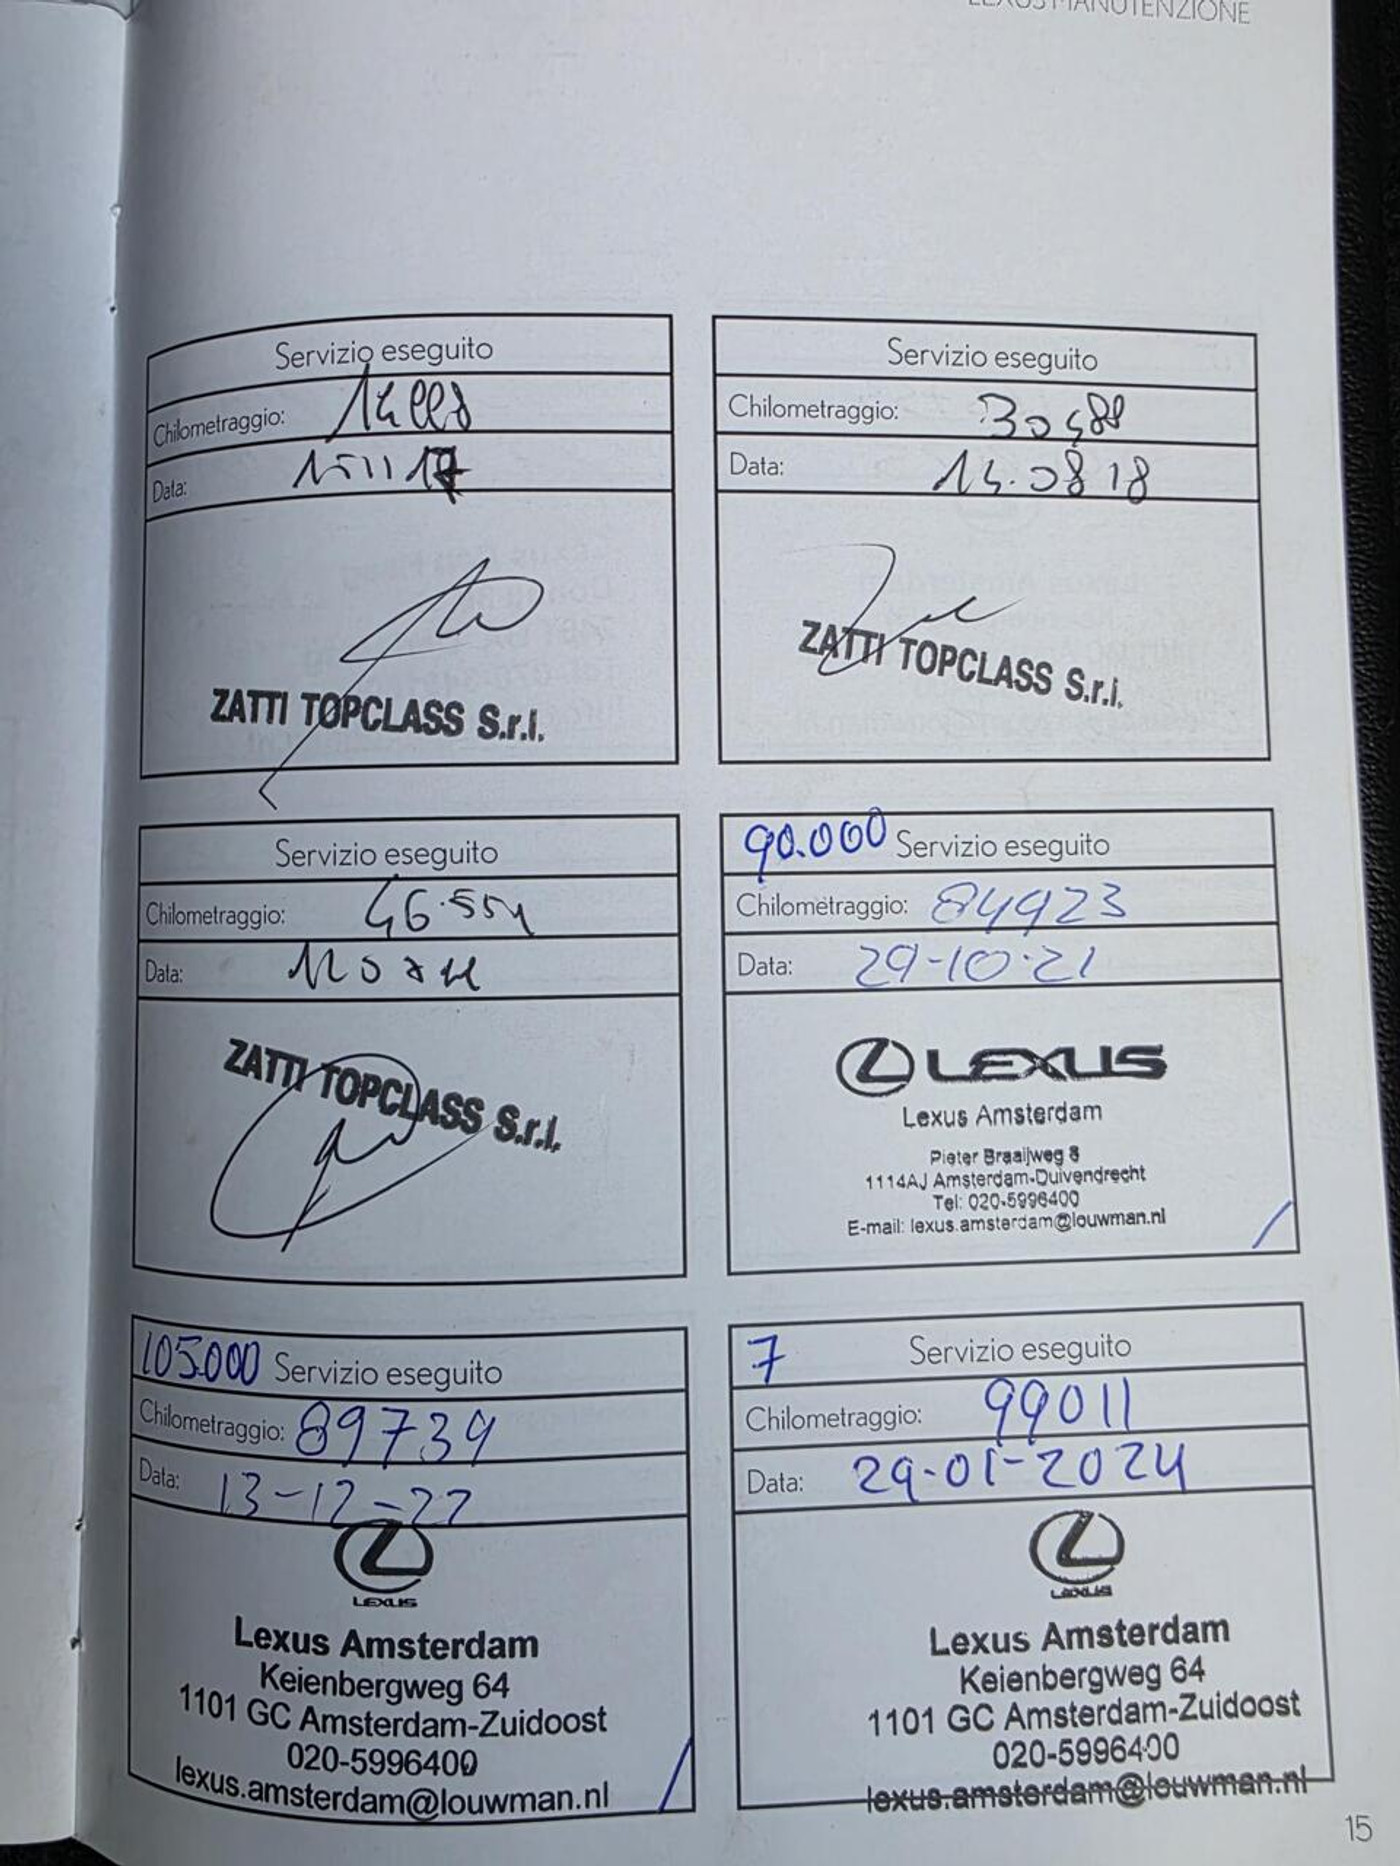 LEXUS MANUTENZIONE
Servizio eseguito
Chilometraggio:
Data:
ZATTI TOPCLASS S.r.l.
Servizio eseguito
Chilometraggio:
Data: 14.08 18
ZATTI TOPCLASS S.r.l.
Servizio eseguito
Chilometraggio:
Data:
ZATTI TOPCLASS S.r.l.
90.000 Servizio eseguito
Chilometraggio: 84923
Data: 29-10-21
LEXUS
Lexus Amsterdam
Pieter Braaijweg 8
1114AJ Amsterdam-Duivendrecht
Tel: 020-5996400
E-mail: lexus.amsterdam@louwman.nl
105.000 Servizio eseguito
Chilometraggio: 89739
Data: 13-12-22
LEXUS
Lexus Amsterdam
Keienbergweg 64
1101 GC Amsterdam-Zuidoost
020-5996400
lexus.amsterdam@louwman.nl
7 Servizio eseguito
Chilometraggio: 99011
Data: 29-01-2024
LEXUS
Lexus Amsterdam
Keienbergweg 64
1101 GC Amsterdam-Zuidoost
020-5996400
lexus.amsterdam@louwman.nl
15